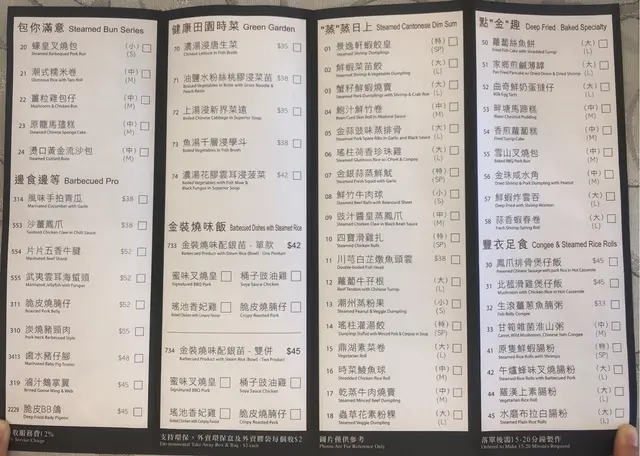 包你滿意 Steamed Bun Series
20 蠔皇叉燒包 (小)
Steamed Barbequed Pork Bun (S)
21 潮式糯米卷 (中)
Glutinous Rice with Yam Roll (M)
22 薑粒雞包仔 (中)
Mushroom & Chicken Bun (M)
23 原籠馬璮糕 (中)
Steamed Chinese Sponge Cake (M)
24 燙口黃金流沙包 (中)
Steamed Custard Buns (M)
邊食邊等 Barbecued Pro
314 風味手拍青瓜 $38
Marinated Cucumber with Garlic
313 沙薑鳳爪 $38
554 片片五香牛𦟌 $52
Marinated Beef Shank
555 武夷雲耳海蜇頭 $52
Marinated Jellyfish with Fungus
311 脆皮燒腩仔 $52
Roasted Pork Belly
310 炭燒豬頸肉 $55
Pork Neck Barbecued Style
3413 鹵水豬仔腳 $48
319 滷汁鵝掌翼 $45
Brined Goose Wing & Web
2229 脆皮BB鴿 $45
Deep Fried Baby Pigeon
收服務費12%
Service Charge
健康田園時菜 Green Garden
70 濃湯浸唐生菜 $35
Chinese Lettuce in Fish Broth
71 油鹽水粉絲桃膠浸菜苗 $38
72 上湯浸新界菜遠 $35
Boiled Chinese Cabbage in Superior Soup
73 魚湯千層浸學斗 $38
Boiled Vegetables in Fish Broth
74 濃湯花膠雲耳浸菠菜 $42
Boiled Vegetables with Fish Maw &
Black Fungus in Superior Soup
金裝燒味飯 Barbecued Dishes with Steamed Rice
733 金裝燒味配銀苗 - 單款 $42
Barbecued Product with Steam Rice (Bowl) - One Product
蜜味叉燒皇 桶子豉油雞
Signatured BBQ Pork Soya Sauce Chicken
瑤池香妃雞 脆皮燒腩仔
Crispy Roasted Pork
734 金裝燒味配銀苗 - 雙併 $45
Barbecued Product with Steam Rice (Bowl) - (Two Product)
蜜味叉燒皇 桶子豉油雞
Signatured BBQ Pork Soya Sauce Chicken
瑤池香妃雞 脆皮燒腩仔
Crispy Roasted Pork
支持環保，外賣環保盒及外賣膠袋每個收$2
Environmental Take-Away Box & Bag : $2 each
"蒸"蒸日上 Steamed Cantonese Dim Sum
01 景逸軒蝦餃皇 (特)
Steamed Shrimp Dumplings (SP)
02 鮮蝦菜苗餃 (大)
Steamed Shrimp & Vegetable Dumpling (L)
03 蟹籽鮮蝦燒賣 (大)
Steamed Pork Dumplings with Shrimp & Crab Roe (L)
04 鮑汁鮮竹卷 (中)
Bean Curd Skin Roll in Abalone Sauce (M)
05 金蒜豉味蒸排骨 (大)
Steamed Pork Spare Ribs in Garlic and Black Sauce (L)
06 瑤柱荷香珍珠雞 (大)
Steamed Glutinous Rice w/ Conpoy & Conpoy (L)
07 金銀蒜蒸鮮魷 (特)
Steamed Fresh Squid with Garlic (SP)
08 鮮竹牛肉球 (小)
Steamed Beef Balls with Beancurd Sheet (S)
09 豉汁醬皇蒸鳳爪 (中)
Steamed Chicken Claw in Black Bean Sauce (M)
10 四寶滑雞扎 (特)
Steamed Chicken Rolls (SP)
11 川芎白芷燉魚頭雲 $38
Double-Boiled Fish Head
12 蘿蔔牛孖根 (大)
Beef Tendon with Chinese Turnip (L)
13 潮州蒸粉果 (小)
Steamed Peanut & Veggie Dumpling (S)
14 瑤柱灌湯餃 (特)
Dumpling Stuffed with Minced Pork & Conpoy in Soup (SP)
15 鼎湖素菜卷 (大)
Vegetarian Roll (L)
16 時菜鯪魚球 (中)
17 乾蒸牛肉燒賣 (中)
Steamed Minced Beef Dumpling (M)
18 蟲草花素粉粿 (大)
Steamed Veggie Dumpling (L)
圖片僅供參考
Photos Are For Reference Only
點"金"趣 Deep Fried . Baked Specialty
50 蘿蔔絲魚餅 (大)
Fried Fish Cake with Shredded Turnip (L)
51 家鄉煎鹹薄罉 (大)
Pan Fried Pancake w/ Dried Onion & Dried Shrimp (L)
52 曲奇鮮奶蛋撻仔 (大)
Milk Egg Tarts (L)
53 畔塘馬蹄糕 (中)
Water Chestnut Pudding (M)
54 香煎蘿蔔糕 (中)
Fried Turnip Cake (M)
55 雪山叉燒包 (中)
Baked BBQ Pork Bun (M)
56 金珠咸水角 (中)
Dried Shrimp & Pork Dumpling with Peanut (M)
57 鮮蝦炸雲吞 (大)
Deep Fried with Shrimp Wonton (L)
58 蒜香蝦春卷 (大)
Fried Shrimp Spring Roll (L)
豐衣足食 Congee & Steamed Rice Rolls
30 鳳爪排骨煲仔飯 $45
31 北菰滑雞煲仔飯 $45
Mushroom with Chicken Rice in Hot Casserole
32 生滾薑蔥魚腩粥 $33
Fish Belly Congee
33 甘筍雜菌淮山粥 (中)
(M)
41 原隻鮮蝦腸粉 (特)
Steamed Rice Rolls with Shrimps (SP)
42 午爐蜂味叉燒腸粉 (大)
Steamed Rice Rolls with Barbecued Pork (L)
44 羅漢上素腸粉 (大)
Vegetarian Rice Roll (L)
45 水磨布拉白腸粉 (大)
Steamed Plain Rice Rolls (L)
落單後需15-20分鐘製作
Ordered to Make 15-20 Minutes Required